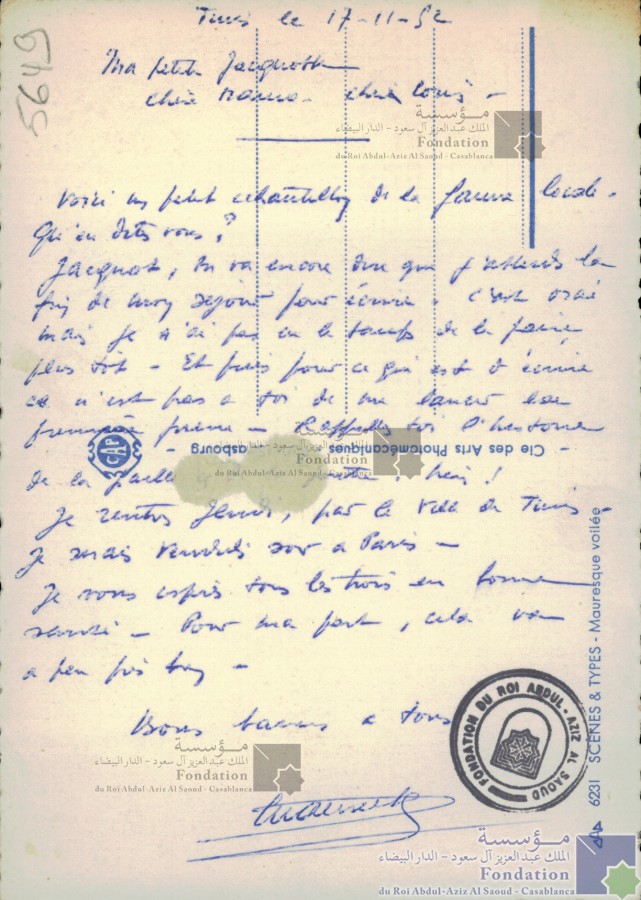 5649
Tunis le 17-11-52
Ma petite Jacquotte
chère Maman - chère Loulou -
مؤسسة
الملك عبدالعزيز آل سعود - الدار البيضاء
Fondation
du Roi Abdul-Aziz Al Saoud - Casablanca
Voici un petit échantillon de la faune locale.
Qu'en dites vous?
Jacquot, tu va encore dire que j'attends la
fin de mon séjour pour écrire. c'est vrai
mais je n'ai pas eu le temps de le faire
plus tôt - Et puis pour ce qui est d'écrire
ce n'est pas a toi de me lancer la
première pierre - Rappelle toi l'histoire
de la paille hein!
Je rentre Jeudi, par le Ville de Tunis -
Je serais Vendredi soir a Paris -
Je vous espère tous les trois en bonne
santé - Pour ma part, cela va
a peu près bien -
Bons baisers a tous
CAP
Cie des Arts Photomécaniques
مؤسسة
الملك عبدالعزيز آل سعود - الدار البيضاء
Fondation
du Roi Abdul-Aziz Al Saoud - Casablanca
6231 SCÈNES & TYPES - Mauresque voilée
FONDATION DU ROI ABDUL-AZIZ AL SAOUD
مؤسسة
الملك عبدالعزيز آل سعود - الدار البيضاء
Fondation
du Roi Abdul-Aziz Al Saoud - Casablanca
مؤسسة
الملك عبدالعزيز آل سعود - الدار البيضاء
Fondation
du Roi Abdul-Aziz Al Saoud - Casablanca